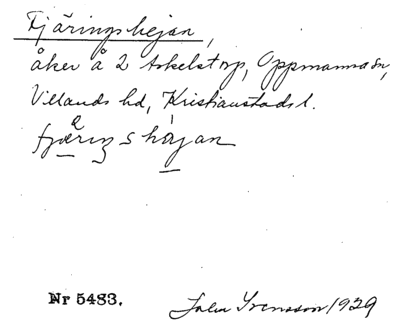 Fjäringshejan,
åker å 2 Askelstorp, Oppmanna sn,
Villands hd, Kristianstads l.
fjæringshájan
Nr 5483.
John Svensson 1929